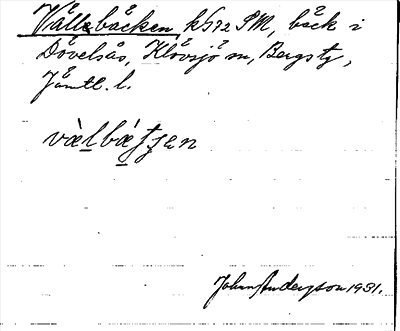 Vållebäcken, k572 SM, bäck i
Dövelsås, Klövsjö sn, Bergs tg,
Jämtl. l.
vàlbátsen
John Anderyson 1931.